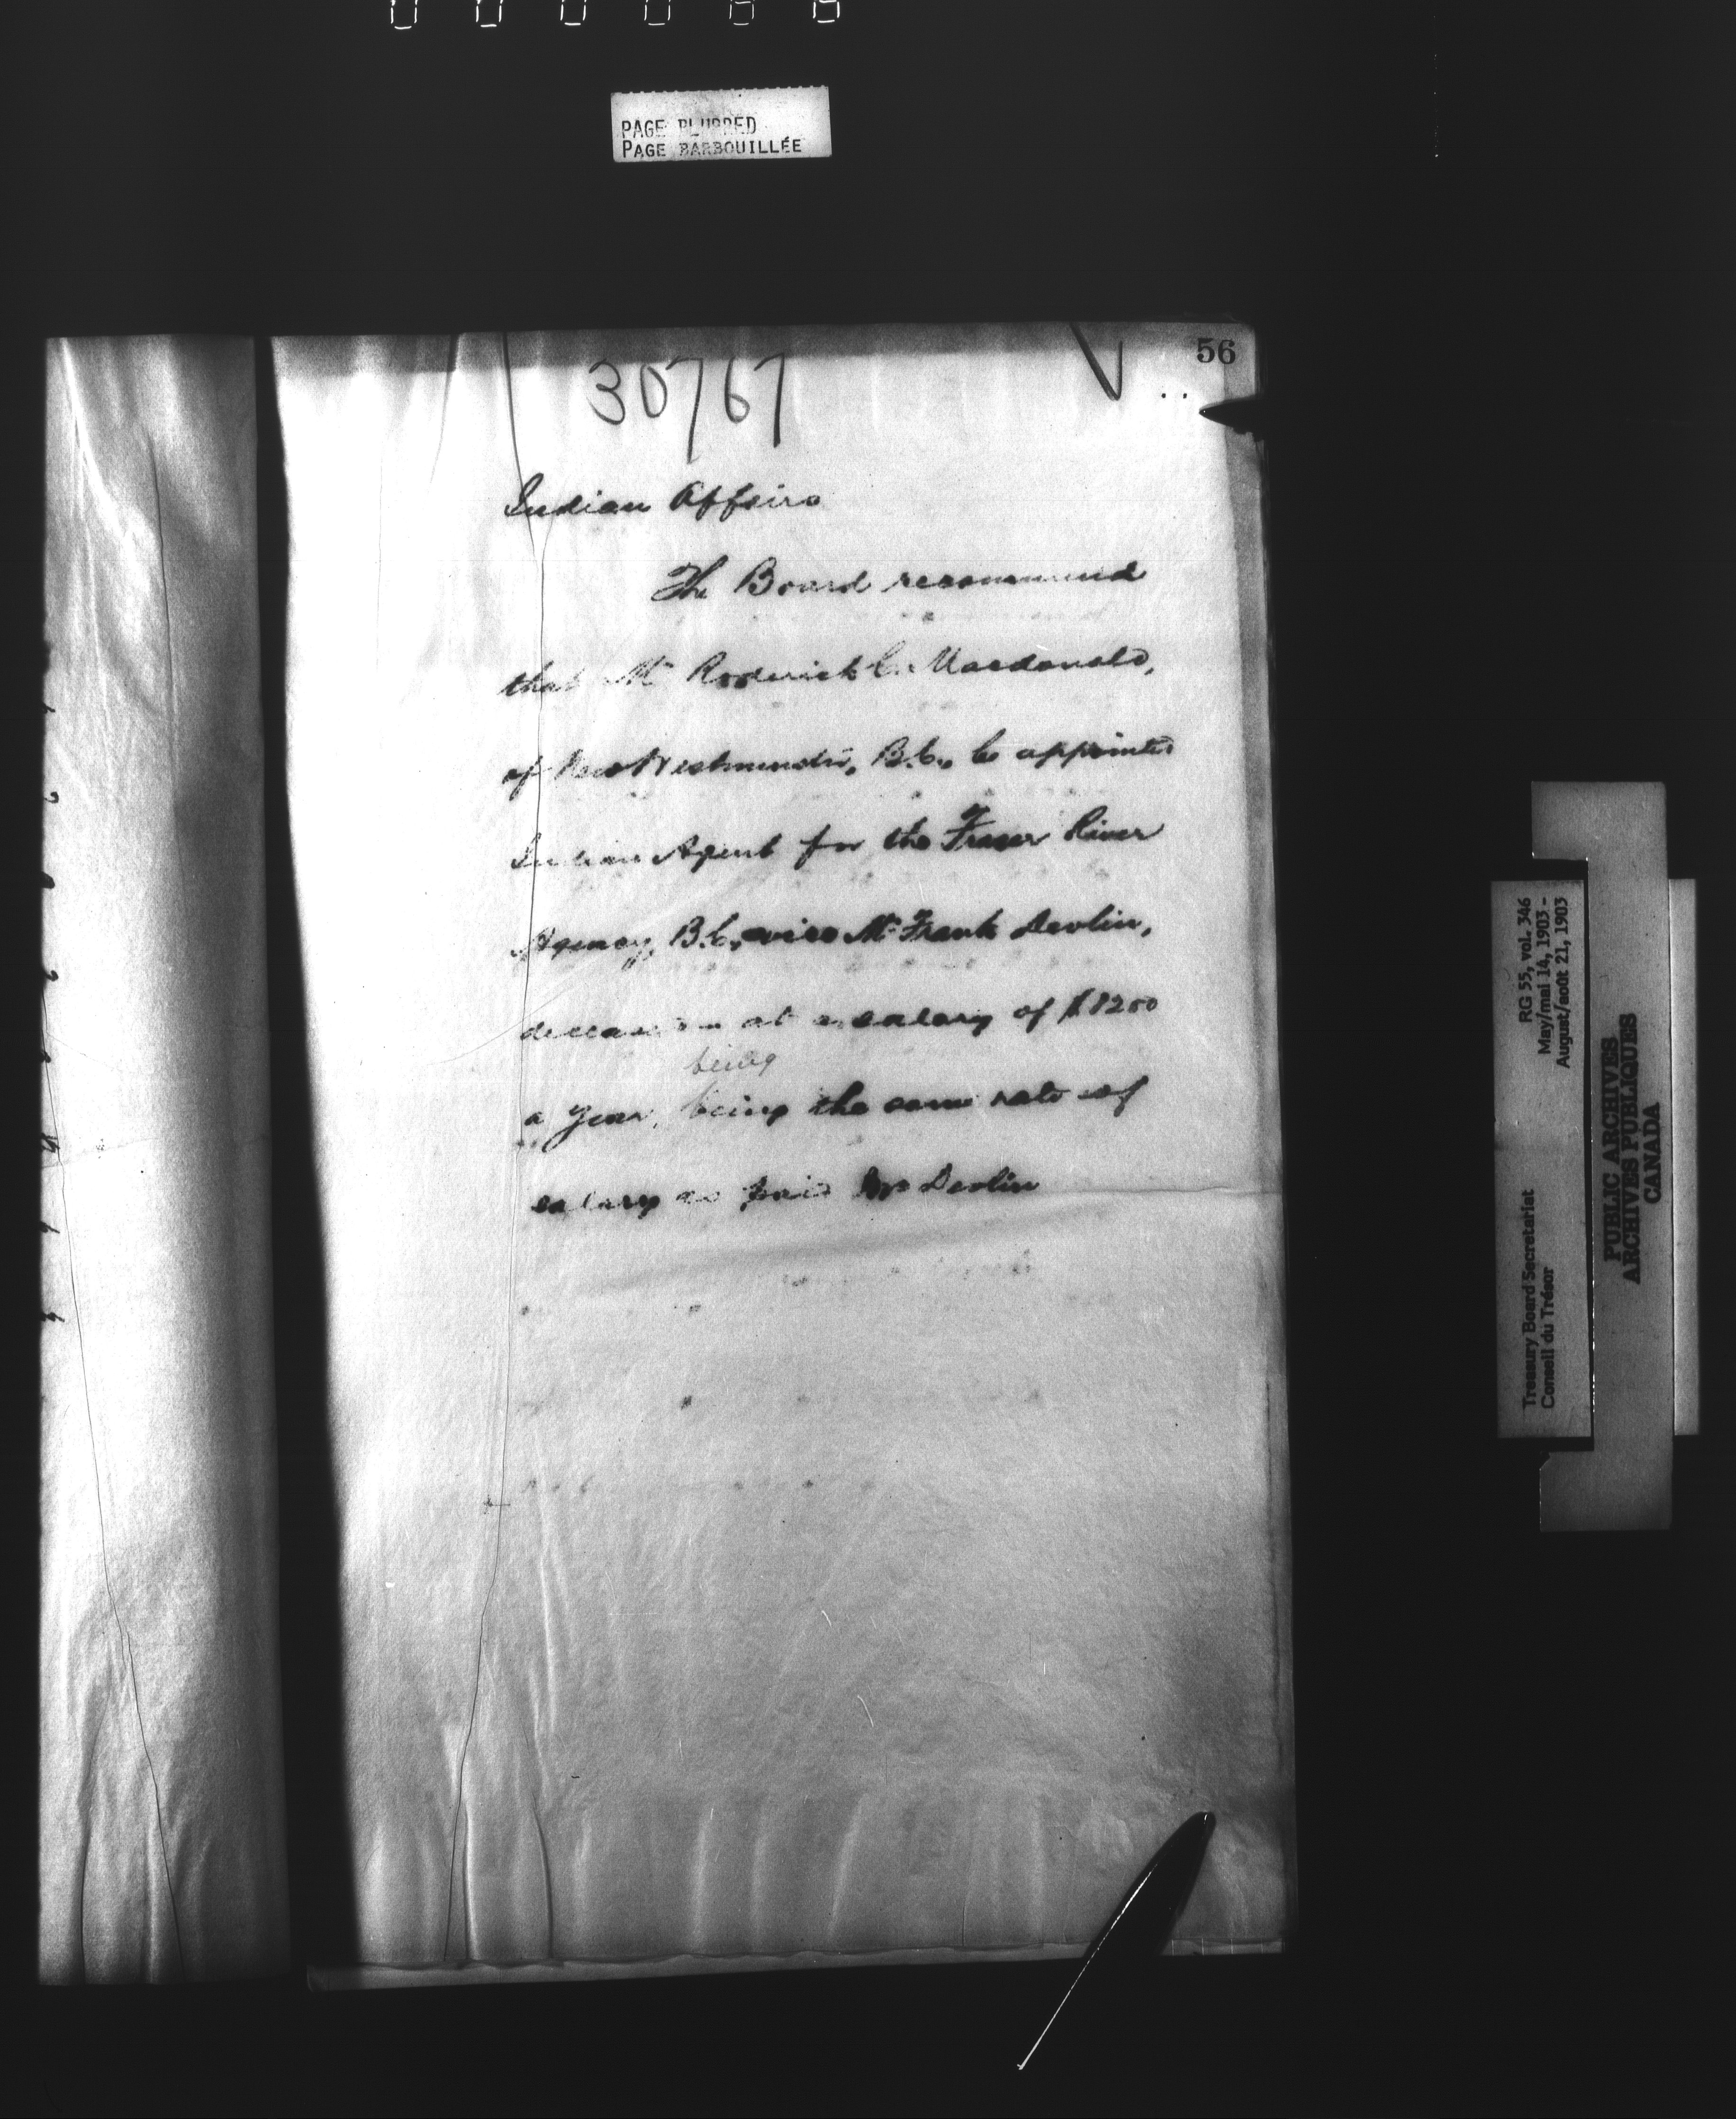 PAGE BLURRED
PAGE BARBOUILLÉE
56
30767
Indian Affairs
The Board recommend
that Mr Roderick C. Macdonald,
of New Westminster, B.C., be appointed
Indian Agent for the Fraser River
Agency, B.C., vice Mr Frank Devlin,
deceased at a salary of $1200
being
a year, being the same rate of
salary as paid Mr Devlin
Treasury Board Secretariat
Conseil du Trésor
RG 55, vol. 346
May/mai 14, 1903 -
August/août 21, 1903
PUBLIC ARCHIVES
ARCHIVES PUBLIQUES
CANADA